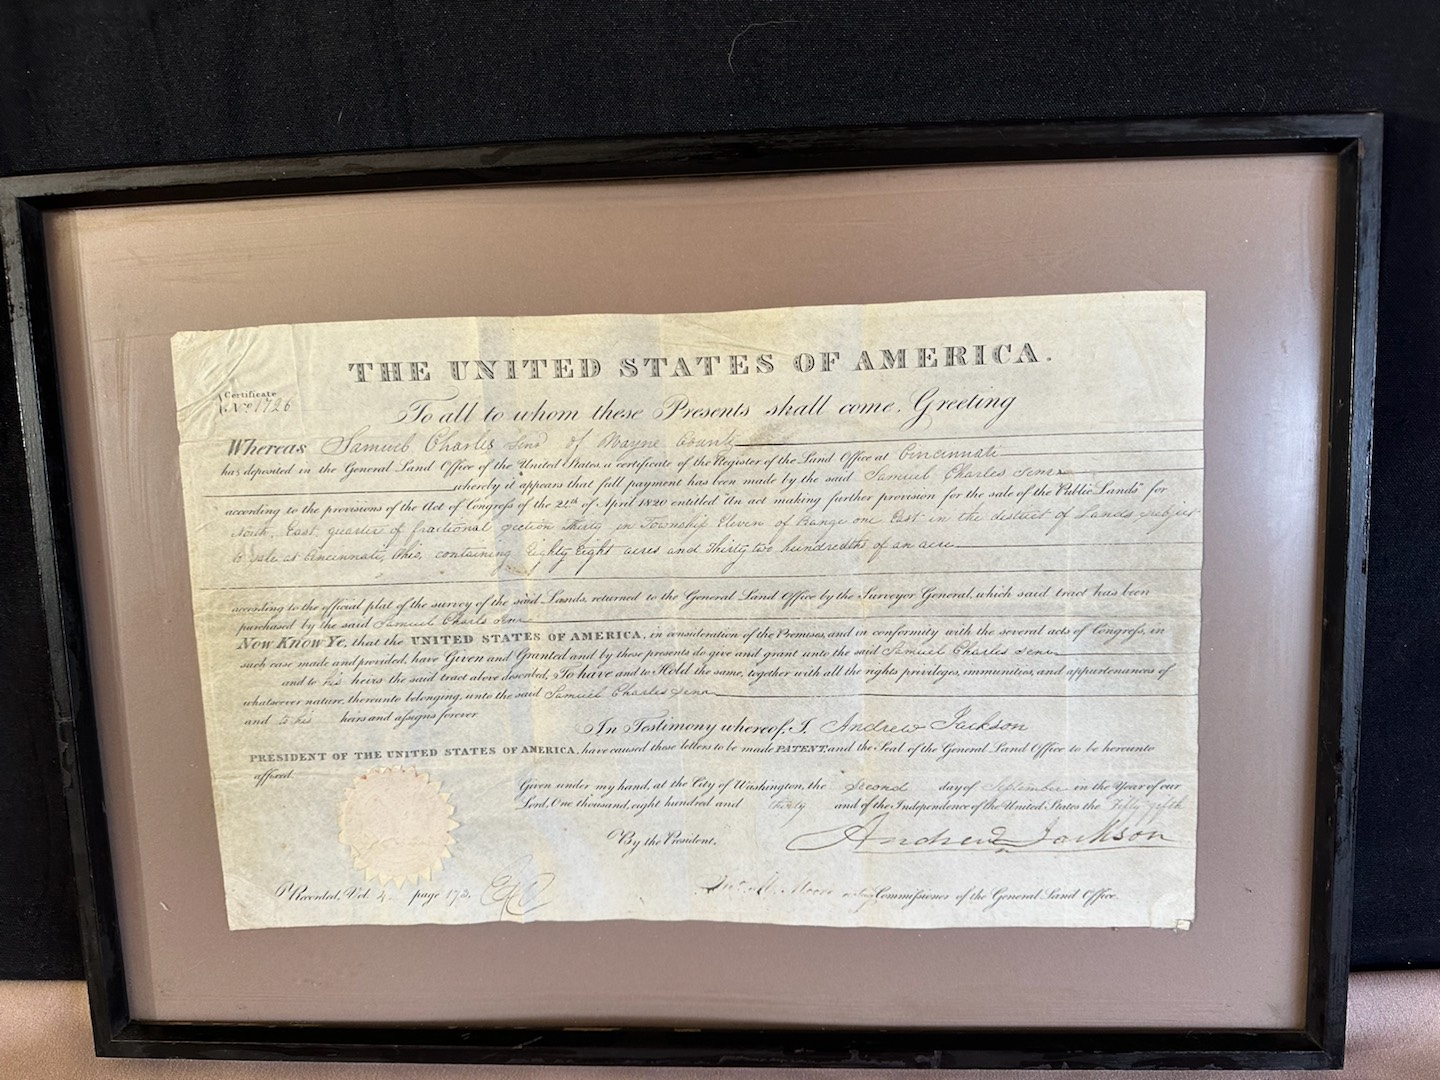 THE UNITED STATES OF AMERICA.
Certificate
No. 1726
To all to whom these Presents shall come, Greeting
Whereas Samuel Charles Senr of Wayne County
has deposited in the General Land Office of the United States, a certificate of the Register of the Land Office at Cincinnati
whereby it appears that full payment has been made by the said Samuel Charles Senr
according to the provisions of the Act of Congress of the 24th of April 1820 entitled "An act making further provision for the sale of the Public Lands" for
North East quarter of fractional section Thirty in Township Eleven of Range one East in the district of Lands subject
to sale at Cincinnati, Ohio, containing Eighty Eight acres and Thirty two hundredths of an acre
according to the official plat of the survey of the said Lands, returned to the General Land Office by the Surveyor General, which said tract has been
purchased by the said Samuel Charles Senr
Now Know Ye, that the UNITED STATES OF AMERICA, in consideration of the Premises, and in conformity with the several acts of Congress, in
such case made and provided, have Given and Granted and by these presents do give and grant unto the said Samuel Charles Senr
and to his heirs the said tract above described, To have and to Hold the same, together with all the rights privileges, immunities, and appurtenances of
whatsoever nature, thereunto belonging, unto the said Samuel Charles Senr
and to his heirs and assigns forever
In Testimony whereof, I, Andrew Jackson
PRESIDENT OF THE UNITED STATES OF AMERICA, have caused these letters to be made PATENT, and the Seal of the General Land Office to be hereunto
affixed.
Given under my hand, at the City of Washington, the Second day of September in the Year of our
Lord, One thousand, eight hundred and thirty and of the Independence of the United States the Fifty fifth
By the President,
Andrew Jackson
Recorded, Vol. 4. page 173.
Moore Commissioner of the General Land Office.